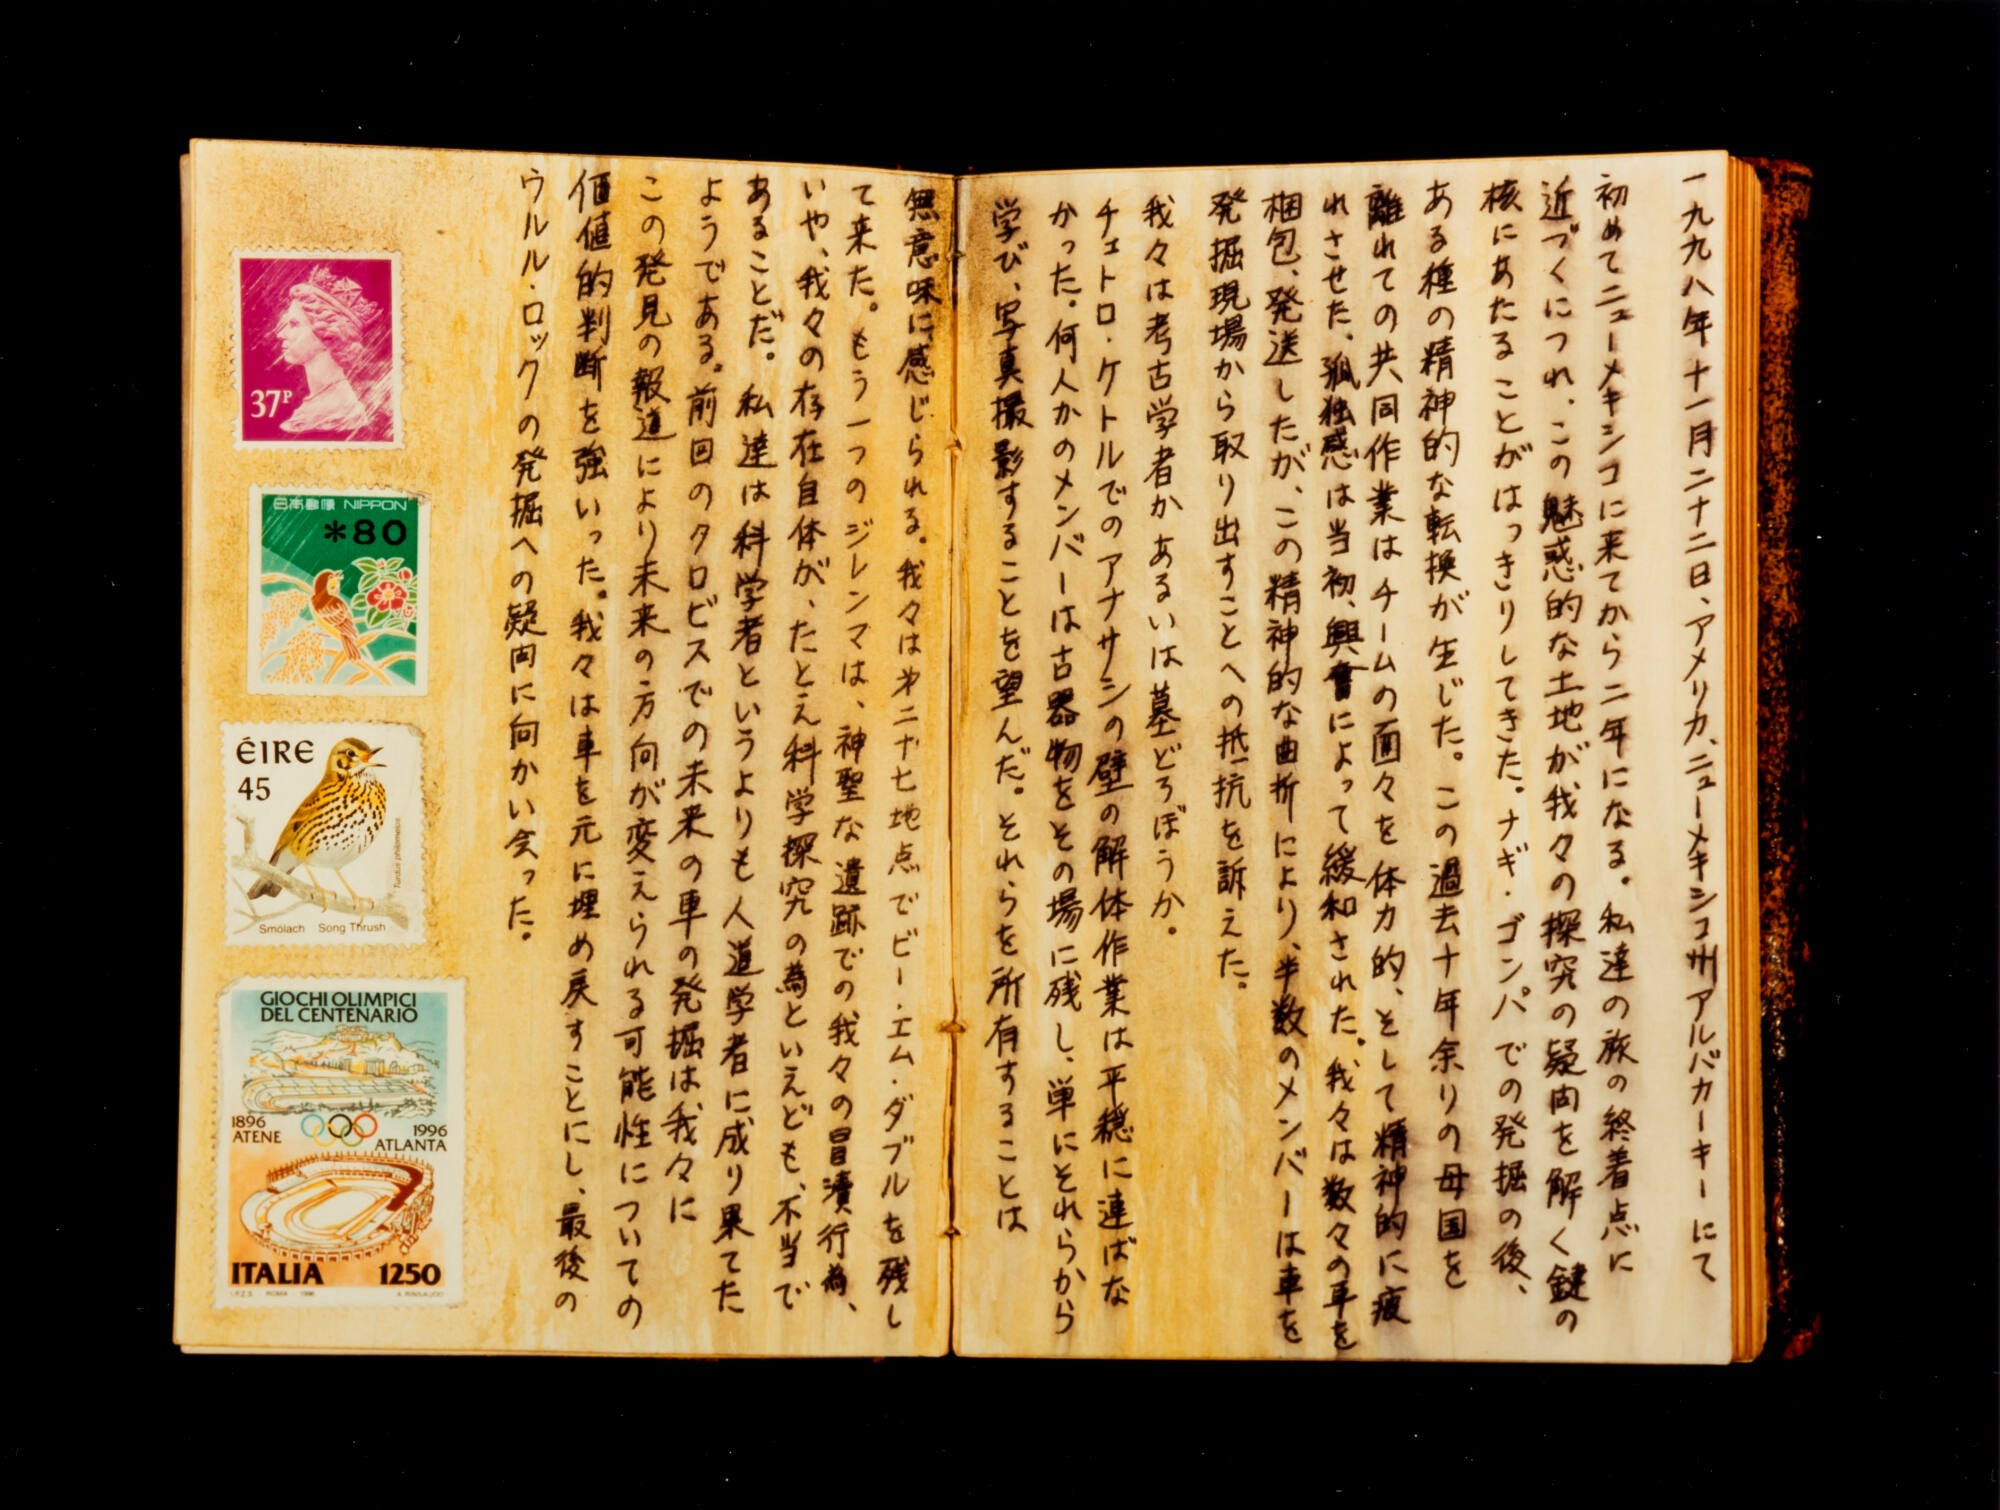 一九九八年十一月二十二日、アメリカ、ニューメキシコ州アルバカーキーにて
初めてニューメキシコに来てから二年になる。私達の旅の終着点に
近づくにつれ、この魅惑的な土地が、我々の探究の疑問を解く鍵の
核にあたることがはっきりしてきた。ナギ・ゴンパでの発掘の後、
ある種の精神的な転換が生じた。この過去十年余りの母国を
離れての共同作業はチームの面々を体力的、そして精神的に疲
れさせた。孤独感は当初、興奮によって緩和された。我々は数々の車を
梱包、発送したが、この精神的な曲折により、半数のメンバーは車を
発掘現場から取り出すことへの抵抗を訴えた。
我々は考古学者かあるいは墓どろぼうか。
チェトロ・ケトルでのアナサシの壁の解体作業は平穏に運ばな
かった。何人かのメンバーは古器物をその場に残し、単にそれらから
学び、写真撮影することを望んだ。それらを所有することは
無意味に感じられる。我々は第二十七地点でビー・エム・ダブルを残し
て来た。もう一つのジレンマは、神聖な遺跡での我々の冒瀆行為、
いや、我々の存在自体が、たとえ科学探究の為といえども、不当で
あることだ。私達は科学者というよりも人道学者に成り果てた
ようである。前回のタロビスでの未来の車の発掘は我々に
この発見の報道により未来の方向が変えられる可能性についての
価値的判断を強いった。我々は車を元に埋め戻すことにし、最後の
ウルル・ロックの発掘への疑問に向かい会った。
37P
日本郵便 NIPPON
*80
ÉIRE
45
Turdus philomelos
Smólach Song Thrush
GIOCHI OLIMPICI
DEL CENTENARIO
1896
ATENE
1996
ATLANTA
ITALIA 1250
I.P.Z.S. ROMA - 1996